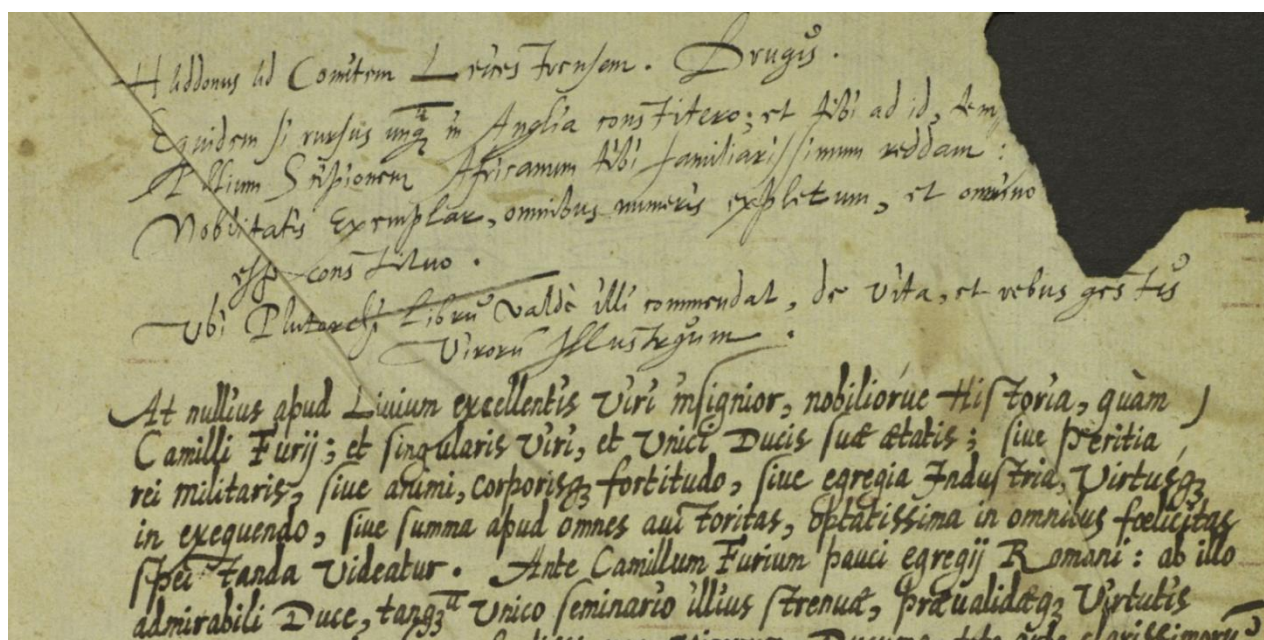 Haddonus ad Comitem Leicestrensem. Brugis.
Equidem si rursus unq̃ in Anglia constitero; et tibi ad id, tem
Scipionem Africanum tibi familiarissimum reddam:
Nobilitatis Exemplar, omnibus numeris expletum, et omnino
esse constituo.
Vbi Plutarchi Librũ valdè illi commendat, de vita, et rebus gestis
Virorũ Illustrium.
At nullius apud Liuium excellentis Viri insignior, nobiliórue Historia, quàm
Camilli Furij; et singularis Viri, et Vnici Ducis suæ ætatis; siue Peritia
rei militaris, siue animi, corporisq; fortitudo, siue egregia Industria, Virtusq;
in exequendo, siue summa apud omnes auctoritas, optatissima in omnibus fœlicitas
spectanda Videatur. Ante Camillum Furium pauci egregij Romani: ab illo
admirabili Duce, tanq; Vnico seminario illius strenuæ, præualidæq; Virtutis